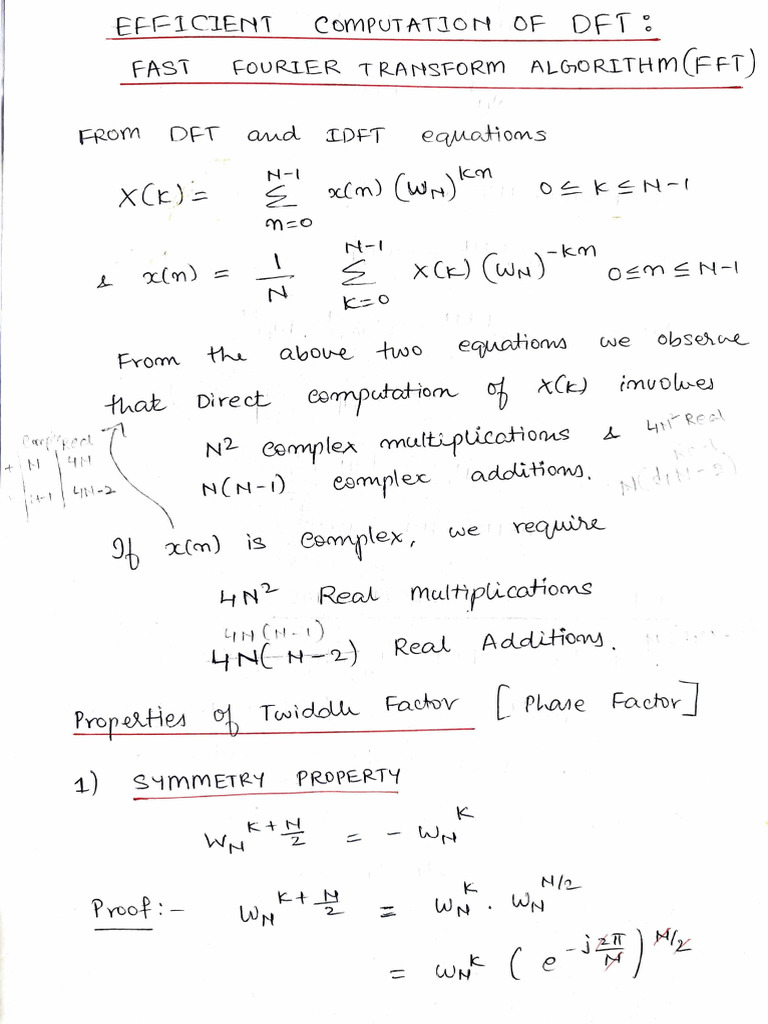 EFFICIENT COMPUTATION OF DFT:
FAST FOURIER TRANSFORM ALGORITHM (FFT)
FROM DFT and IDFT equations
X(k) = Σ_{n=0}^{N-1} x(n) (W_N)^{kn} 0 ≤ k ≤ N-1
& x(n) = 1/N Σ_{k=0}^{N-1} X(k) (W_N)^{-kn} 0 ≤ n ≤ N-1
From the above two equations we observe
that Direct computation of X(k) involves
N² complex multiplications & 4N² Real
N(N-1) complex additions.
Real
N 4N
4N-2
If x(n) is complex, we require
4N² Real Multiplications
4N(N-1)
4N(N-2) Real Additions.
Properties of Twiddle Factor [Phase Factor]
1) SYMMETRY PROPERTY
W_N^{k+N/2} = - W_N^k
Proof:- W_N^{k+N/2} = W_N^k . W_N^{N/2}
= W_N^k (e^{-j2π/N})^{N/2}